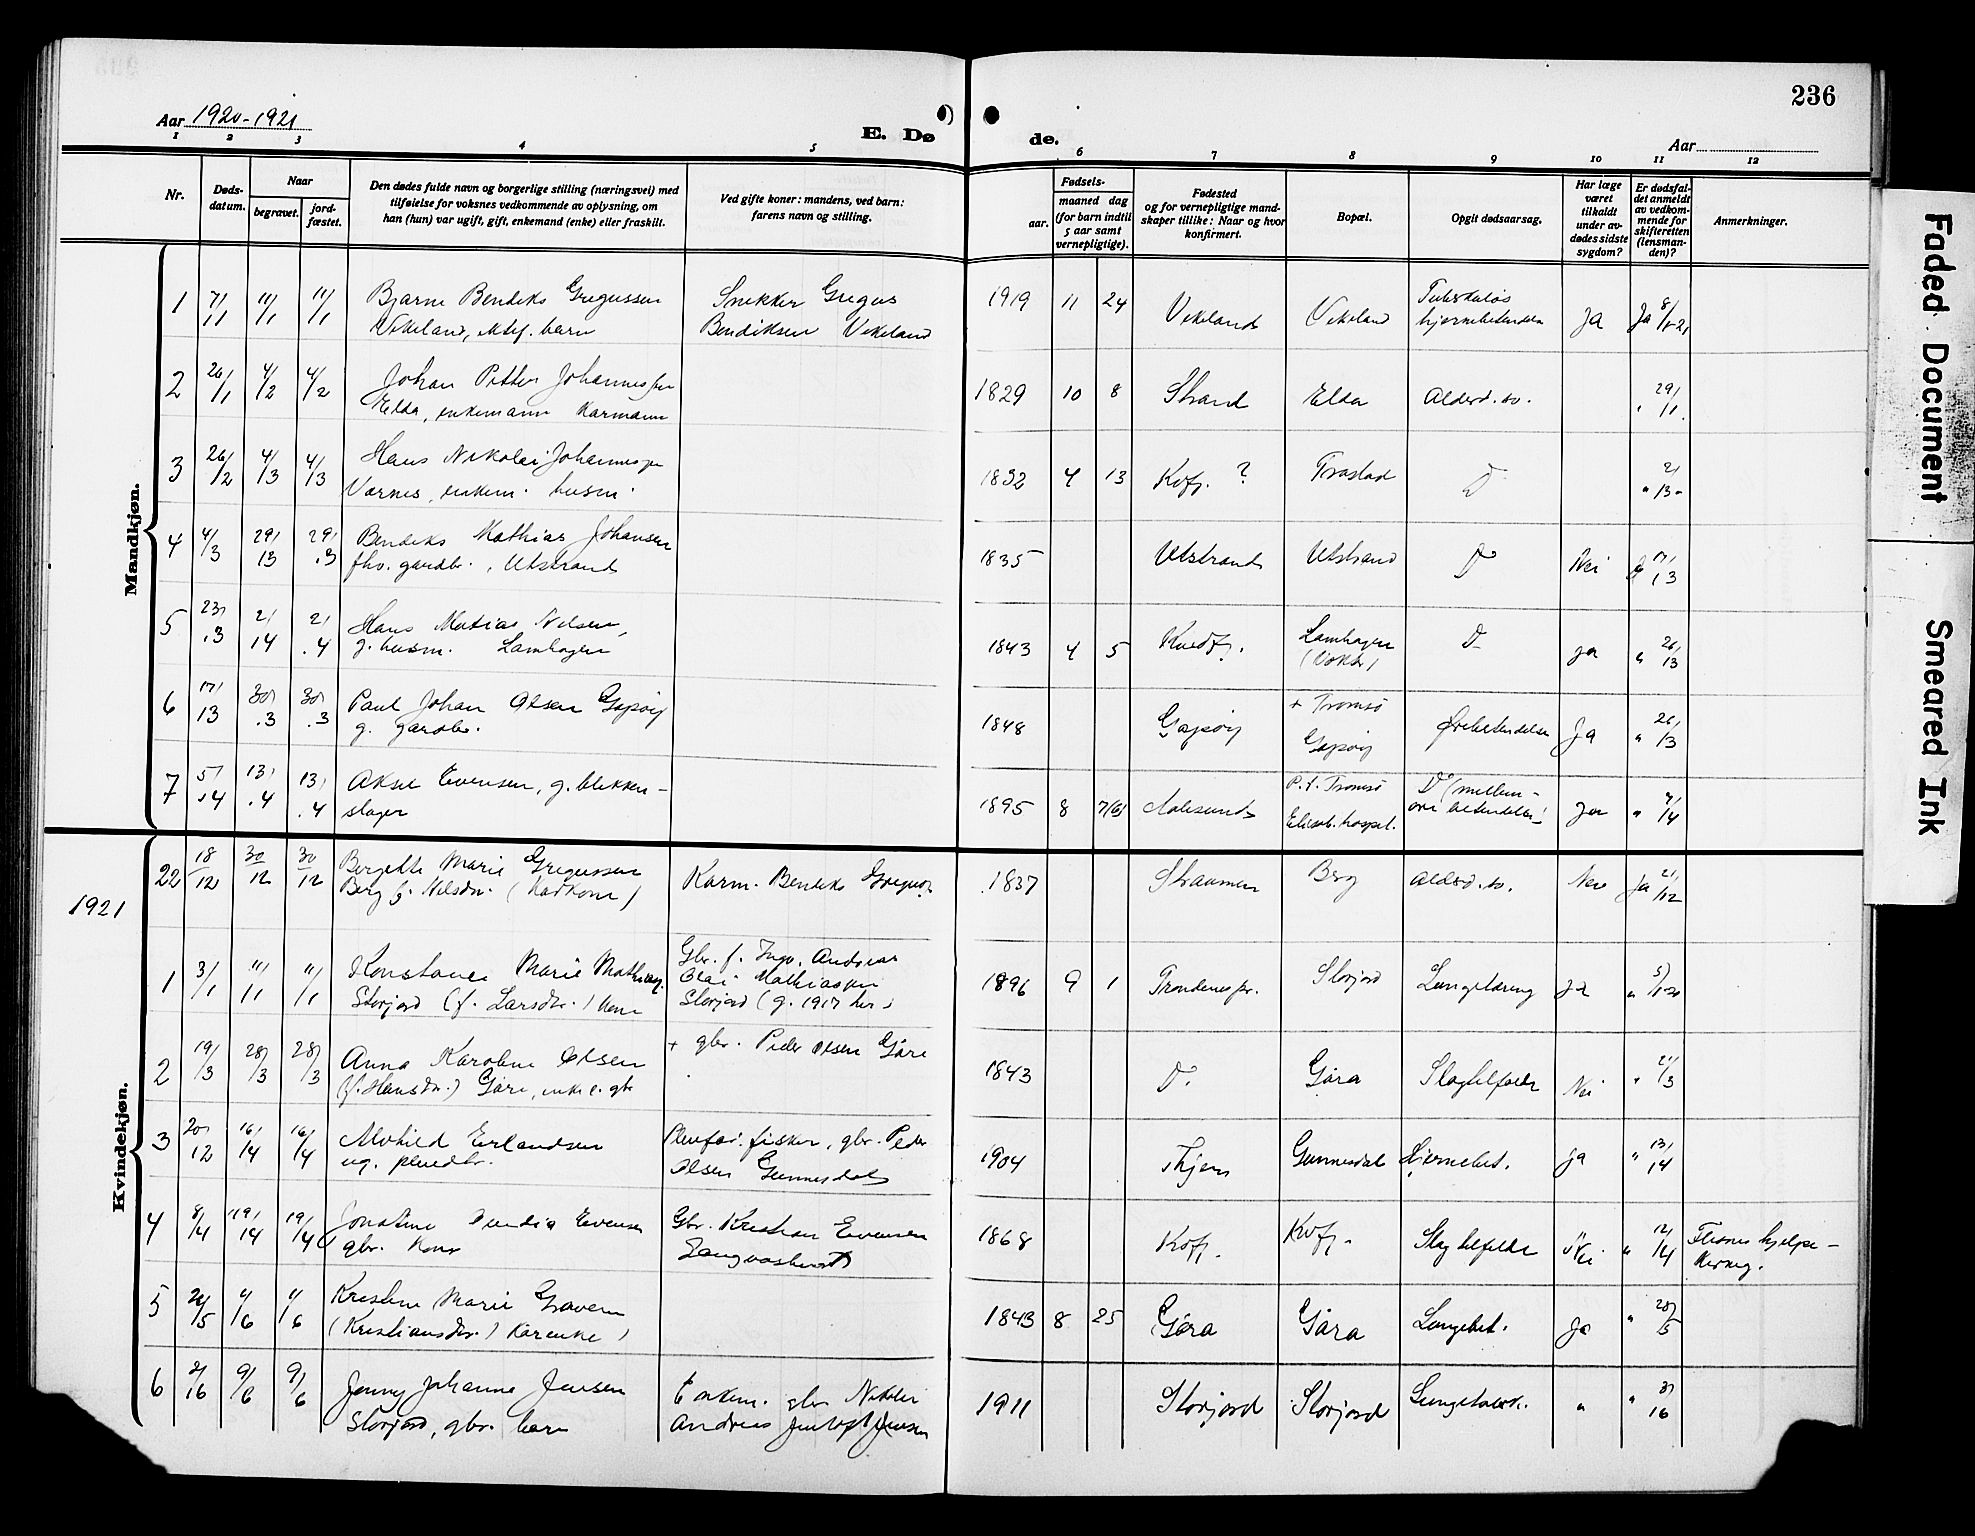 236
Aar 1920-1921
E. Dø de.
Aar
1 2 3 4 5 6 7 8 9 10 11 12
Nr.
Døds-
datum.
Naar
begravet.
jord-
fæstet.
Den dødes fulde navn og borgerlige stilling (næringsvei) med
tilføielse for voksnes vedkommende av oplysning, om
han (hun) var ugift, gift, enkemand (enke) eller fraskilt.
Ved gifte koner: mandens, ved barn:
farens navn og stilling.
Fødsels-
aar.
maaned dag
(for barn indtil
5 aar samt
vernepligtige).
Fødested
og for vernepligtige mand-
skaper tillike: Naar og hvor
konfirmert.
Bopæl.
Opgit dødsaarsag.
Har læge
været
tilkaldt
under av-
dødes sidste
sygdom?
Er dødsfal-
det anmeldt
av vedkom-
mende for
skifteretten
(lensman-
den)?
Anmerkninger.
Mandkjøn.
1 7/1 11/1 11/1 Bjarne Bendiks Gregussen Snekker Gregus 1919 11 24 Vikeland Vikeland Tuberkuløs Ja Ja 8/1-21
Vikeland, barn Bendiksen Vikeland hjernebetendelse
2 26/1 4/2 4/2 Johan Petter Johannessen 1829 10 8 Strand Elda Alderd.sv. " 29/1
Elda, enkemann Karmann
3 26/2 4/3 4/3 Hans Nikolai Johannessen 1832 4 13 Kvfj. ? Trastad D " 2/3
Vornes, enkem. husm.
4 4/3 29/3 29/3 Bendiks Mathias Johansen 1835 Utstrand Utstrand D Nei Ja 17/3
fhv. gardbr., Utstrand
5 23/3 2/4 2/4 Hans Matias Nilsen, 1843 4 5 Kvedfj. Lamhagen D ja " 26/3
g. husm. Lamhagen
6 17/3 30/3 30/3 Paul Johan Olsen Gapøy 1848 Gapøy + Tromsø Ørebetendelse Ja " 26/3
g. gardbr. Gapøy
7 5/4 13/4 13/4 Aksel Evensen, g. blikken- 1895 8 7(6) Aalesund P.t. Tromsø D (mellem- Ja " 7/4
slager Elisab. hospit. øre betendelse)
Kvindekjøn.
22 18/12 30/12 30/12 Bergette Marie Gregussen Karm. Bendiks Greguss. 1837 Straumen Berg Alderd.sv. Nei Ja 21/12
Berg f. Nilsdtr. (kone)
1921
1 3/1 11/1 11/1 Konstance Marie Mathiass. Gbr. f. Ingv. Andreas 1896 9 1 Trondenes pr. Storjord Lungetæring ja " 5/1-21
Storjord (f. Larsdtr.) kone Olai Mathiassen
Storjord (g. 1917 her)
2 19/3 28/3 28/3 Anna Karoline Olsen + gbr. Peder Olsen Gåre 1843 D. Gåra Slagtilfælde Nei " 21/3
(f. Hansdr.) Gåre, enke e. gbr
3 20/12 16/4 16/4 Alvhild Erlandsen Pleiefar: fisker, gbr. Peder 1904 Gunnesdal Hjernebet. ja " 13/4
ug. pleiedtr. Olsen Gunnesdal
4 8/4 19/4 19/4 Jonatine Evensen Gbr. Kristian Evensen 1868 Kvfj. Kvfj. Slagtilfælde Nei " 12/4 Flesnes hjelpe-
gbr. kone kirkeg.
5 24/5 4/6 4/6 Kristine Marie Graven 1843 8 25 Gåra Gåra Lungebet. Ja " 28/5
(Kristiansdtr.) kårenke
6 2/6 9/6 9/6 Jenny Johanna Jensen enkem. gbr Nikolai 1911 Storjord Storjord " " 3/6
Storjord, gbr. barn Andreas Jentoft Jensen
Faded Document
Smeared Ink